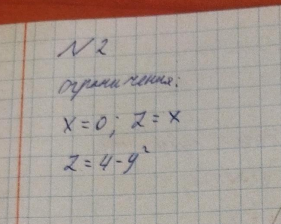 N 2
ограничения:
x=0; z=x
z=4-y²